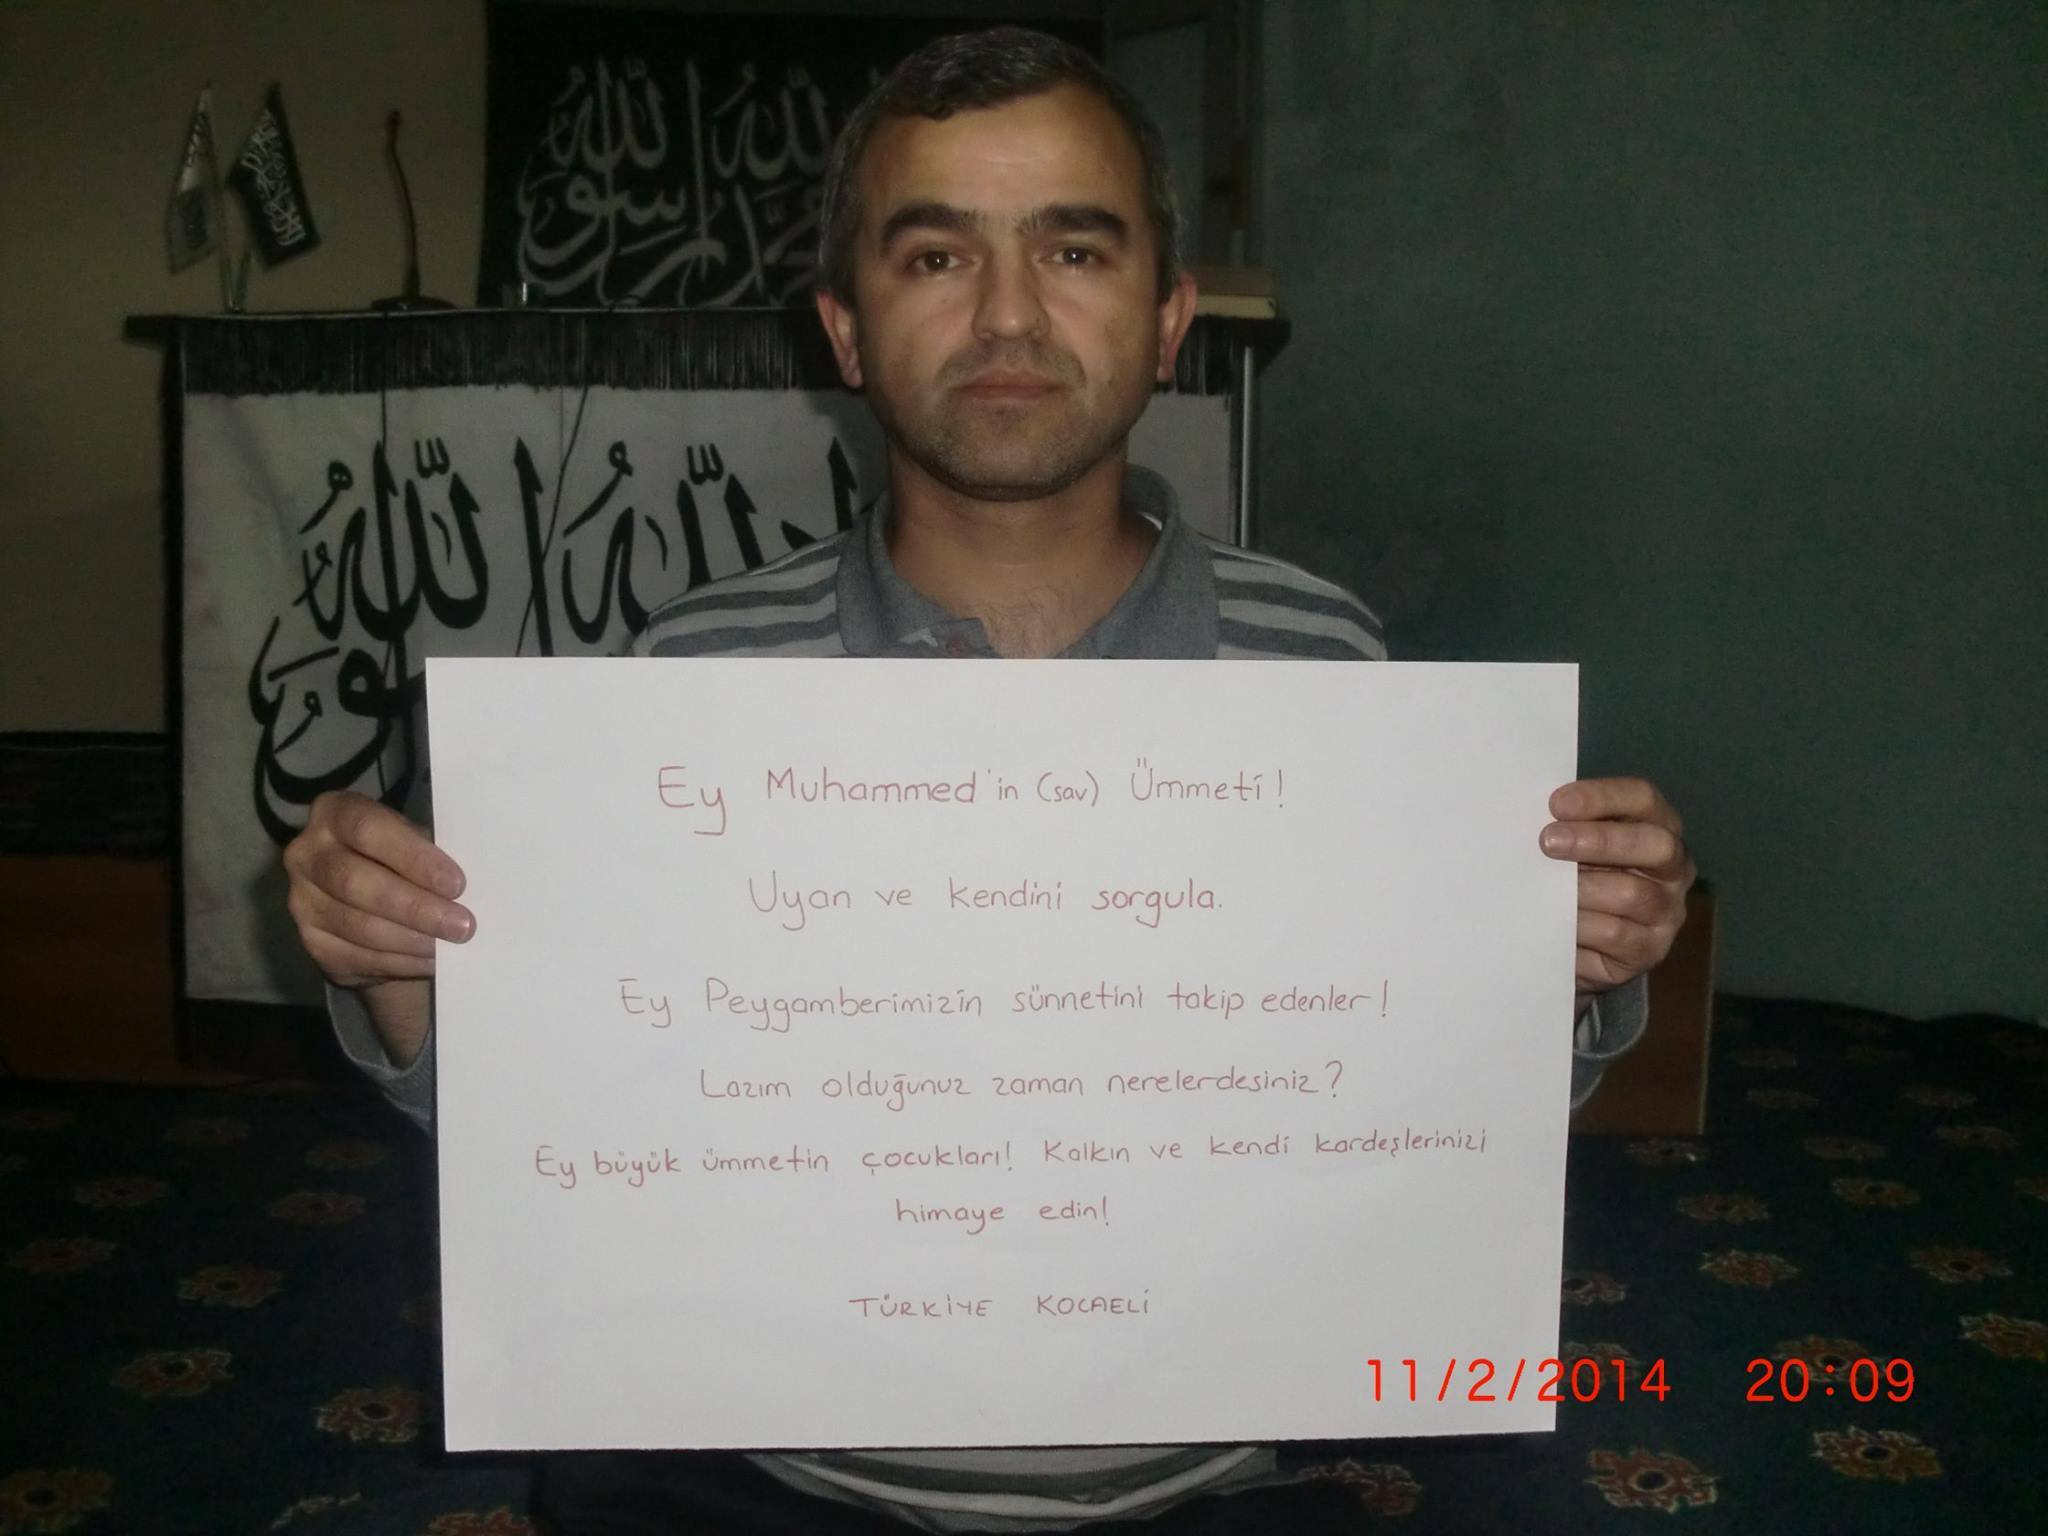 لا اله الا الله محمد رسول الله
لا اله الا الله محمد رسول الله
Ey Muhammed'in (sav) Ümmeti!
Uyan ve kendini sorgula.
Ey Peygamberimizin sünnetini takip edenler!
Lazım olduğunuz zaman nerelerdesiniz?
Ey büyük ümmetin çocukları! Kalkın ve kendi kardeşlerinizi
himaye edin!
TÜRKİYE KOCAELİ
11/2/2014 20:09